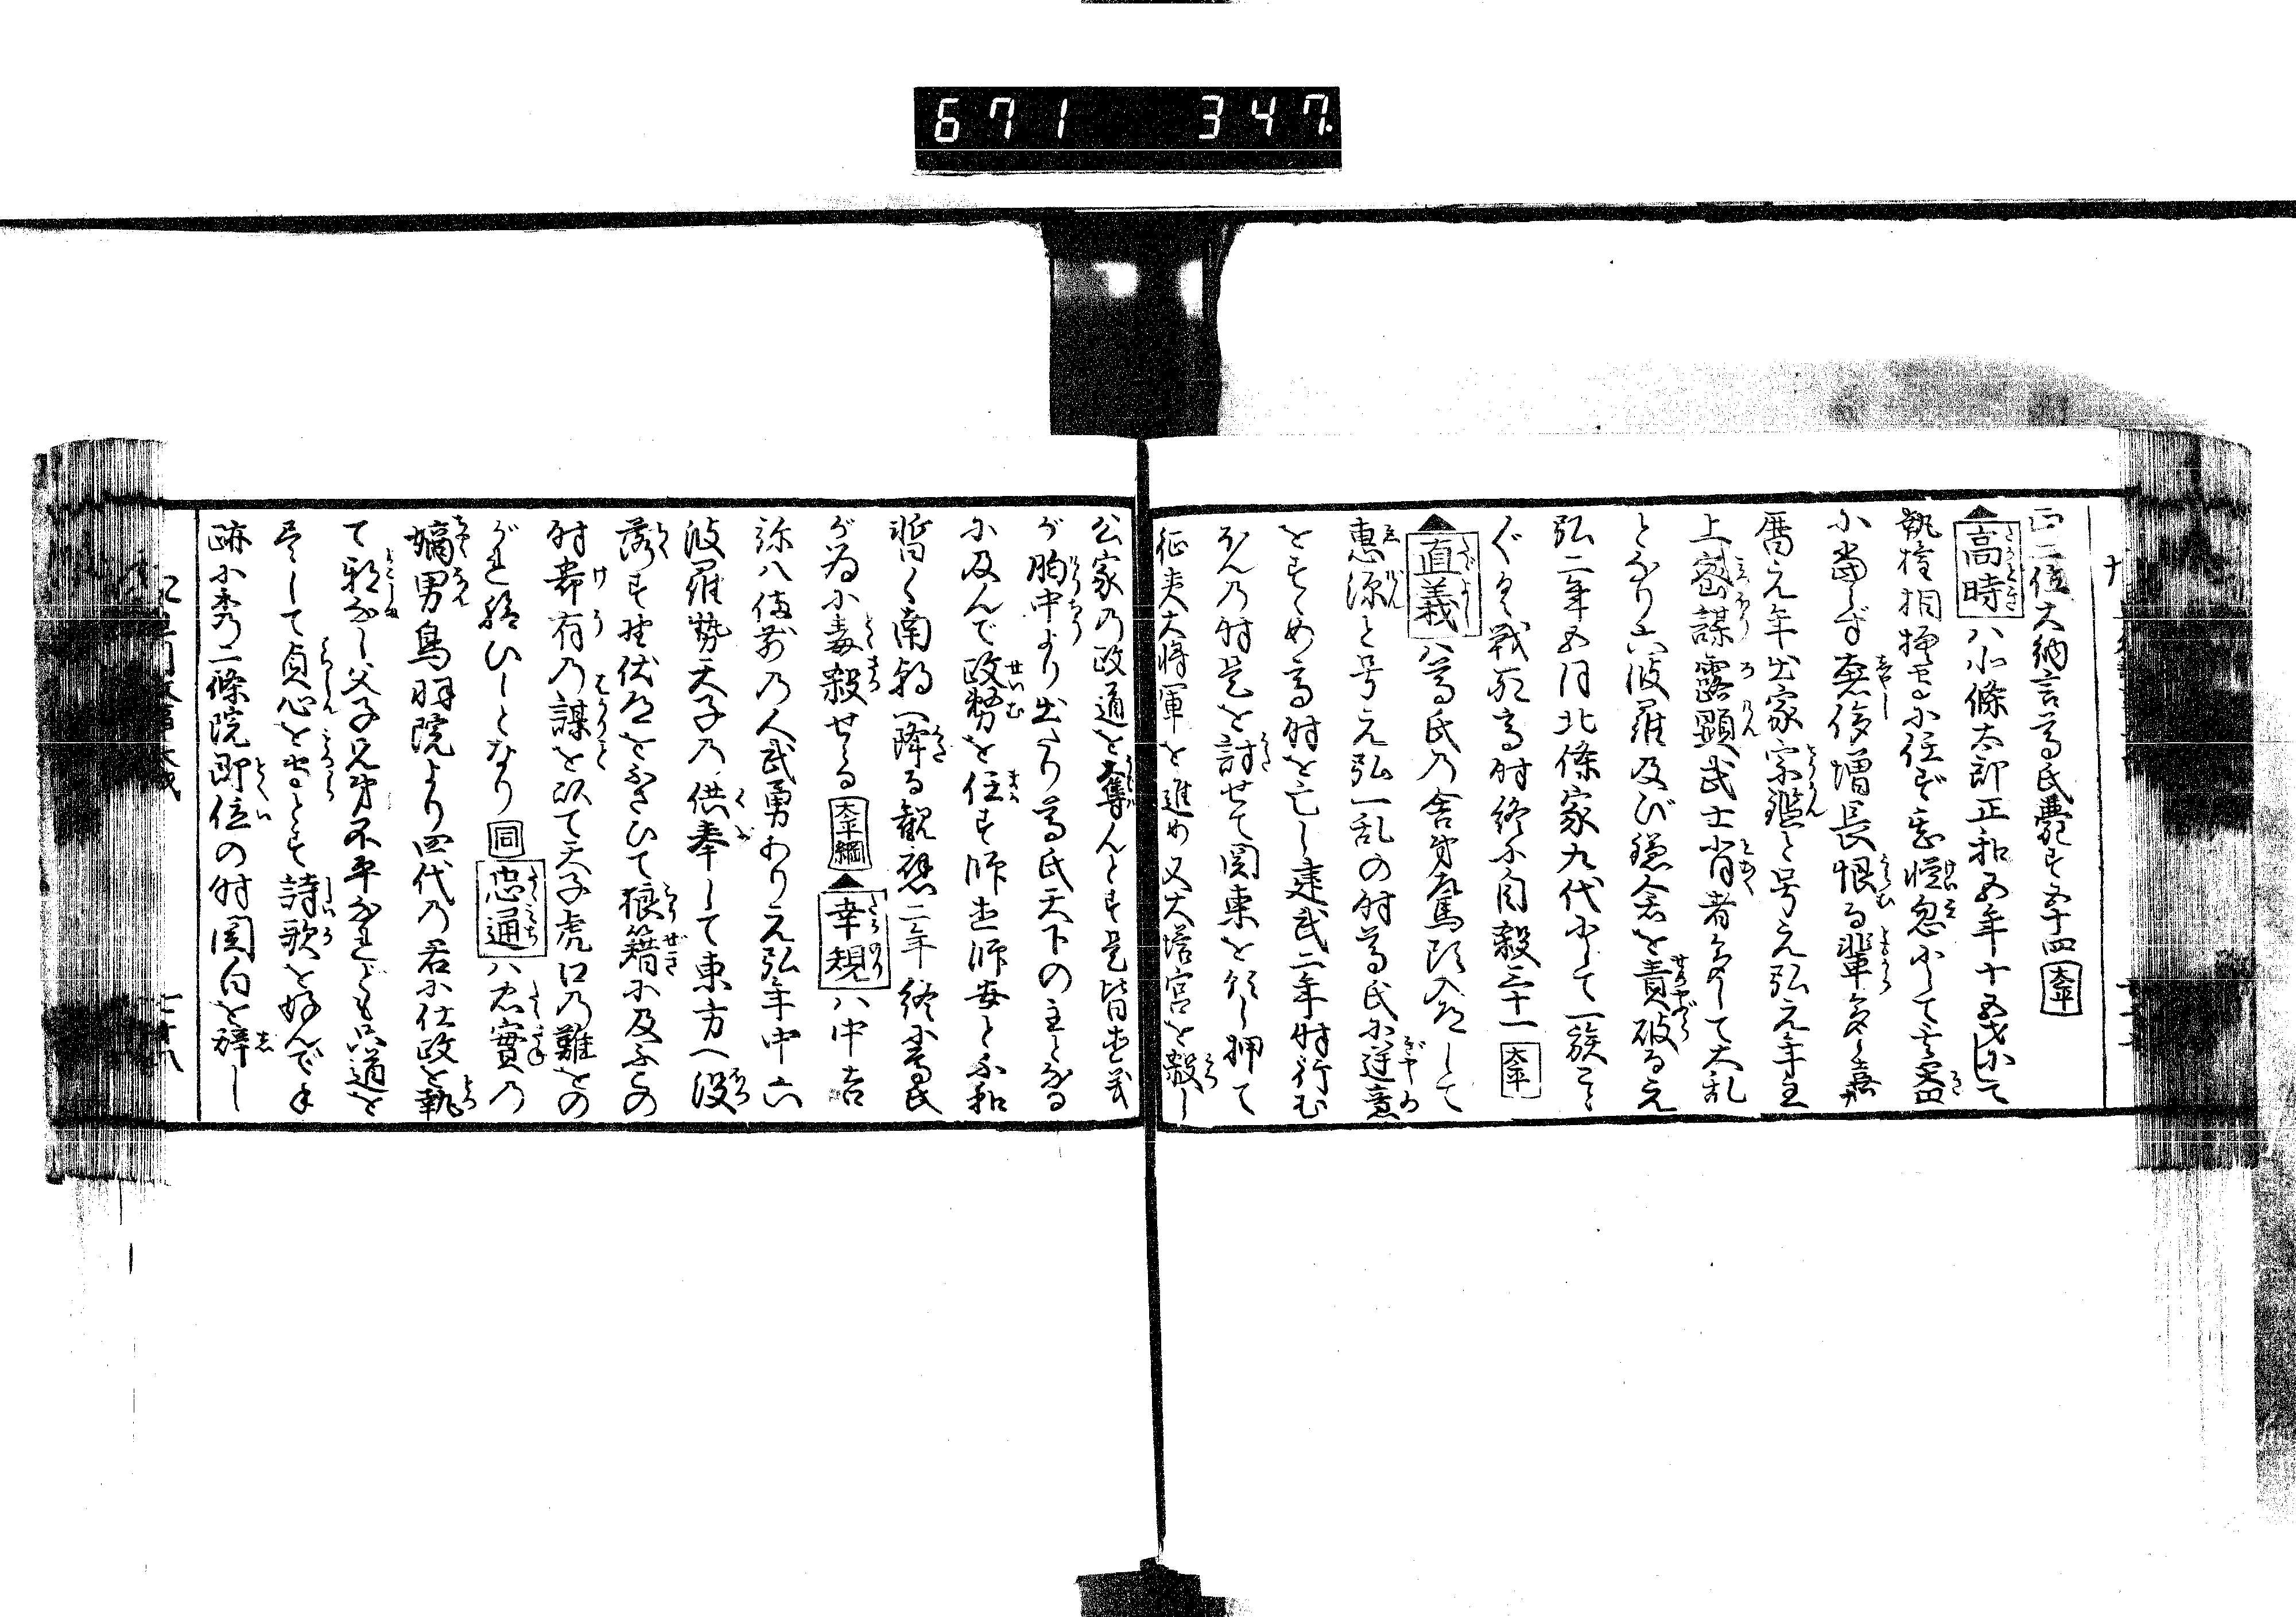 671 347
正二位大納言尊氏薨ず五十四 太平
高時ハ北條太郎正和五年十五才にて
執権相摸守に任ず
に当らず奢侈増長恨る輩多し嘉
暦元年出家宗鑑と号元弘元年主
上密謀露顕武士に背者多して大乱
となり六波羅及び鎌倉を責破る元
弘二年五月北條家九代にして一族こと
ぐく戦死高時終に自殺三十一 太平
直義ハ尊氏の舎弟左馬頭入道して
惠源と号元弘一乱の時尊氏に逆意
をすゝめ高時を亡し建武二年時行む
ほんの時是を討せて関東を領し押て
征夷大将軍を進め又大塔宮を殺し
公家の政道を奪んとす是皆直義
が胸中より出たり尊氏天下の主となる
に及んで政務を任す師直師安と不和
暫く南朝へ降る観應二年終に尊氏
が為に毒殺せらる 太平綱 幸規ハ中吉
弥八備前の人武勇あり元弘年中六
波羅勢天子の供奉して東方へ没
落す野伏道をふさひて狼籍に及ふの
時希有の謀を以て天子虎口の難をの
がれ給ひしとなり 同 忠通ハ忠實の
嫡男鳥羽院より四代の君に仕政を執
て邪なし父子兄弟不平なれども只道を
尽して貞心を守るとす詩歌を好んで手
跡に秀二條院即位の時関白を辞し